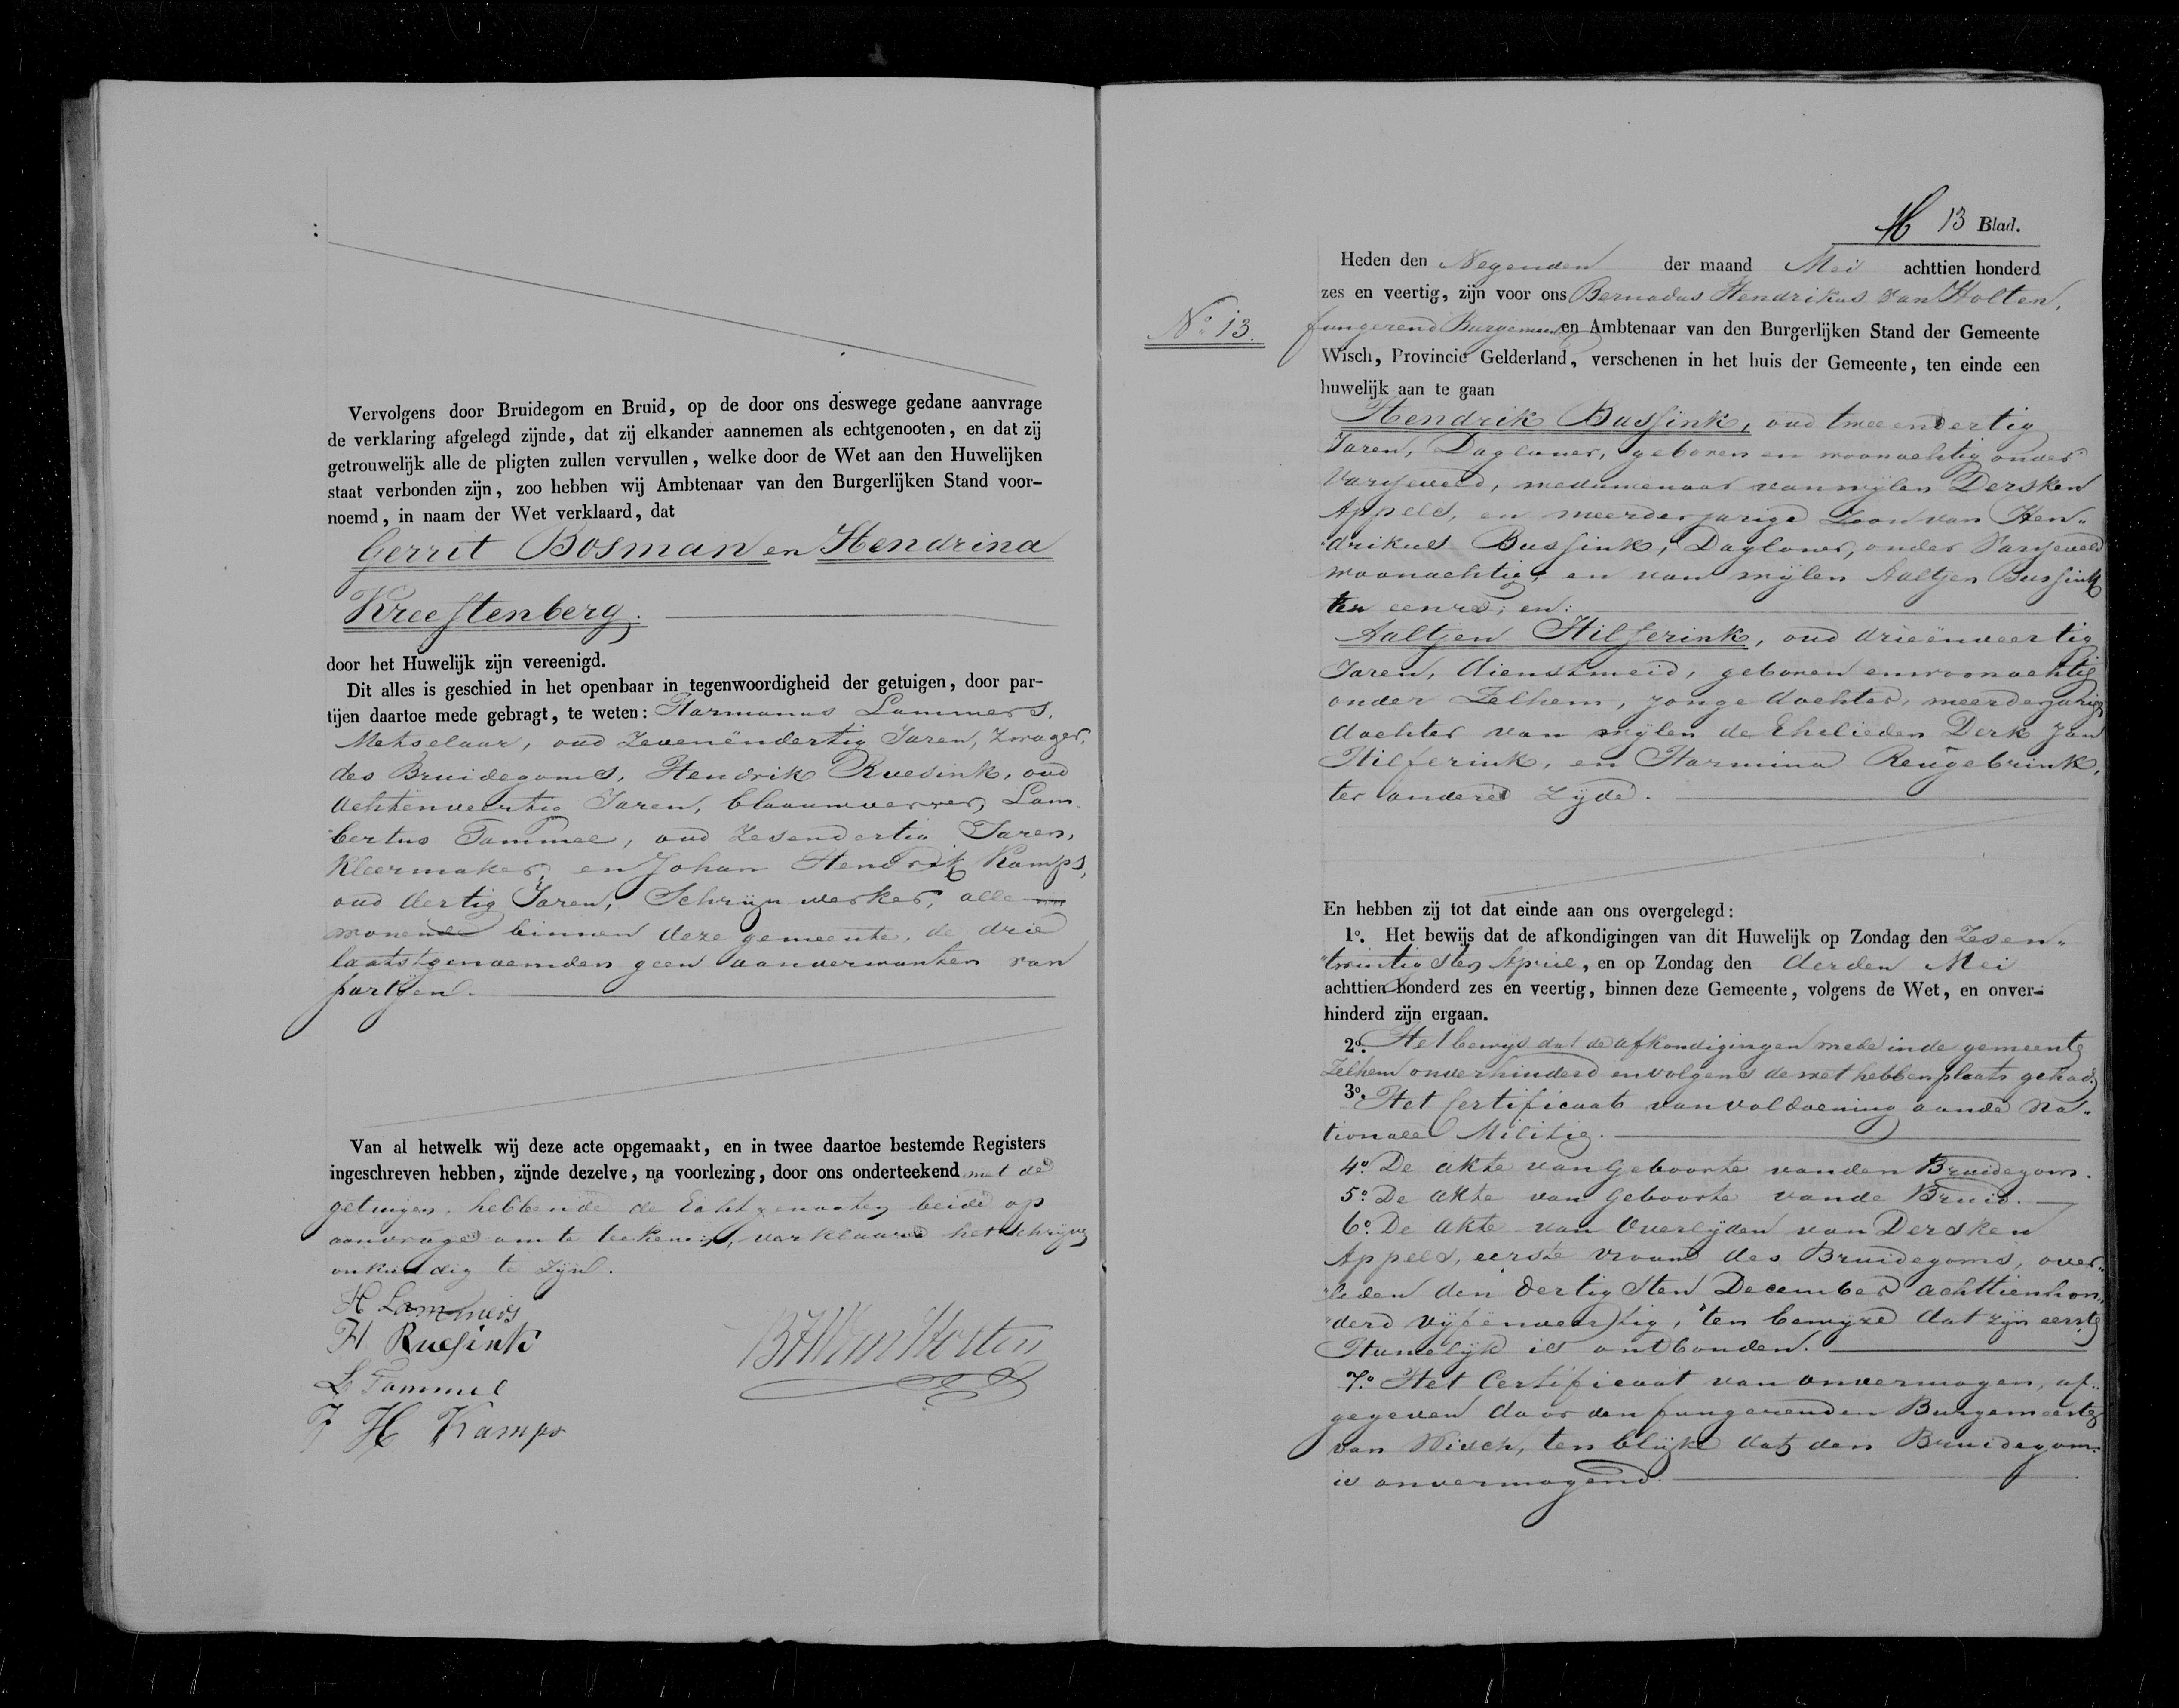 Vervolgens door Bruidegom en Bruid, op de door ons deswege gedane aanvrage
de verklaring afgelegd zijnde, dat zij elkander aannemen als echtgenooten, en dat zij
getrouwelijk alle de pligten zullen vervullen, welke door de Wet aan den Huwelijken
staat verbonden zijn, zoo hebben wij Ambtenaar van den Burgerlijken Stand voor-
noemd, in naam der Wet verklaard, dat
Gerrit Bosman en Hendrina
Kreeftenberg.
door het Huwelijk zijn vereenigd.
Dit alles is geschied in het openbaar in tegenwoordigheid der getuigen, door par-
tijen daartoe mede gebragt, te weten: Harmanus Lammers,
Metselaar, oud Zevenëndertig Jaren, Zwager,
des Bruidegoms, Hendrik Ruesink, oud
Achtenveertig Jaren, blaauwverver, Lam-
bertus Tammel, oud Zesendertig Jaren,
Kleermaker, en Johan Hendrik Kamps,
oud dertig Jaren, Schrijnwerker, alle
wonende binnen deze gemeente, de drie
laatstgenoemden geen aanverwanten van
partijen.
Van al hetwelk wij deze acte opgemaakt, en in twee daartoe bestemde Registers
ingeschreven hebben, zijnde dezelve, na voorlezing, door ons onderteekend met de
getuigen, hebbende de Echtgenooten beide op
aanvrage om te teekenen, verklaard het schrijven
onkundig te zijn.
H Lammers
H Ruesink
L Tammel
J H Kamps
BHVan Holten
13 Blad.
No. 13.
Heden den Negenden der maand Mei achttien honderd
zes en veertig, zijn voor ons Bernadus Hendrikus van Holten,
fungerend Burgemeester en Ambtenaar van den Burgerlijken Stand der Gemeente
Wisch, Provincie Gelderland, verschenen in het huis der Gemeente, ten einde een
huwelijk aan te gaan
Hendrik Bussink, oud tweeendertig
Jaren, Dagloner, geboren en woonachtig onder
Varsseveld, weduwenaar van wijlen Dersken
Appels, en meerderjarige Zoon van Hen-
drikus Bussink, Dagloner, onder Varsseveld
woonachtig, en van wijlen Aaltjen Bussink
ter eenre; en:
Aaltjen Hilferink, oud drieënveertig
Jaren, dienstmeid, geboren en woonachtig
onder Zelhem, jonge dochter, meerderjarige
dochter van wijlen de Ehelieden Derk Jan
Hilferink, en Harmina Reugebrink,
ter andere Zijde.
En hebben zij tot dat einde aan ons overgelegd:
1o. Het bewijs dat de afkondigingen van dit Huwelijk op Zondag den Zesen-
twintigsten April, en op Zondag den derden Mei
achttien honderd zes en veertig, binnen deze Gemeente, volgens de Wet, en onver-
hinderd zijn ergaan.
2o. Het bewijs dat de afkondigingen mede in de gemeente
Zelhem onverhinderd en volgens de wet hebben plaats gehad.
3o. Het Certificaat van voldoening aan de Na-
tionale Militie.
4o. De akte van Geboorte van den Bruidegom.
5o. De akte van Geboorte van de Bruid.
6o. De akte van Overlijden van Dersken
Appels, eerste vrouw des Bruidegoms, over-
leden den dertigsten December achttienhon-
derd vijfenveertig, ten bewijze dat zijn eerste
Huwelijk is ontbonden.
7o. Het Certificaat van onvermogen, af-
gegeven door den fungerenden Burgemeester
van Wisch, ten blijke dat den Bruidegom
is onvermogend.